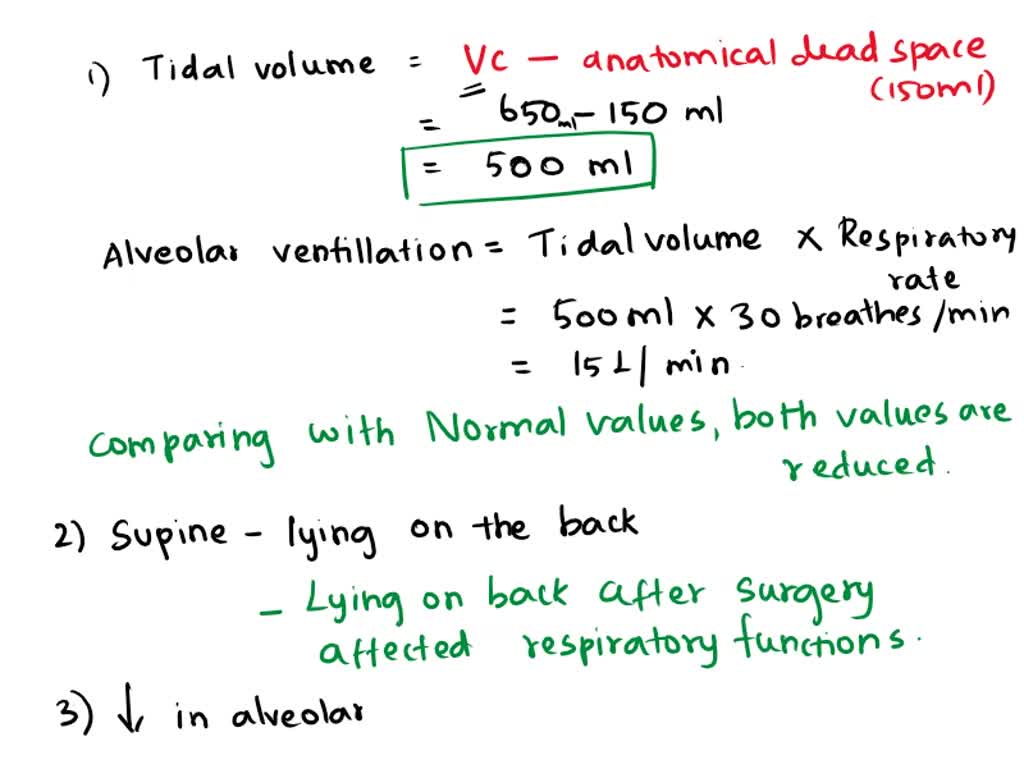 1) Tidal volume = Vc - anatomical dead space
(150ml)
= 650ml - 150 ml
= 500 ml
Alveolar ventillation = Tidal volume x Respiratory
rate
= 500ml x 30 breathes/min
= 15 L/min.
Comparing with Normal values, both values are
reduced.
2) Supine - lying on the back
- Lying on back after surgery
affected respiratory functions.
3) ↓ in alveolar